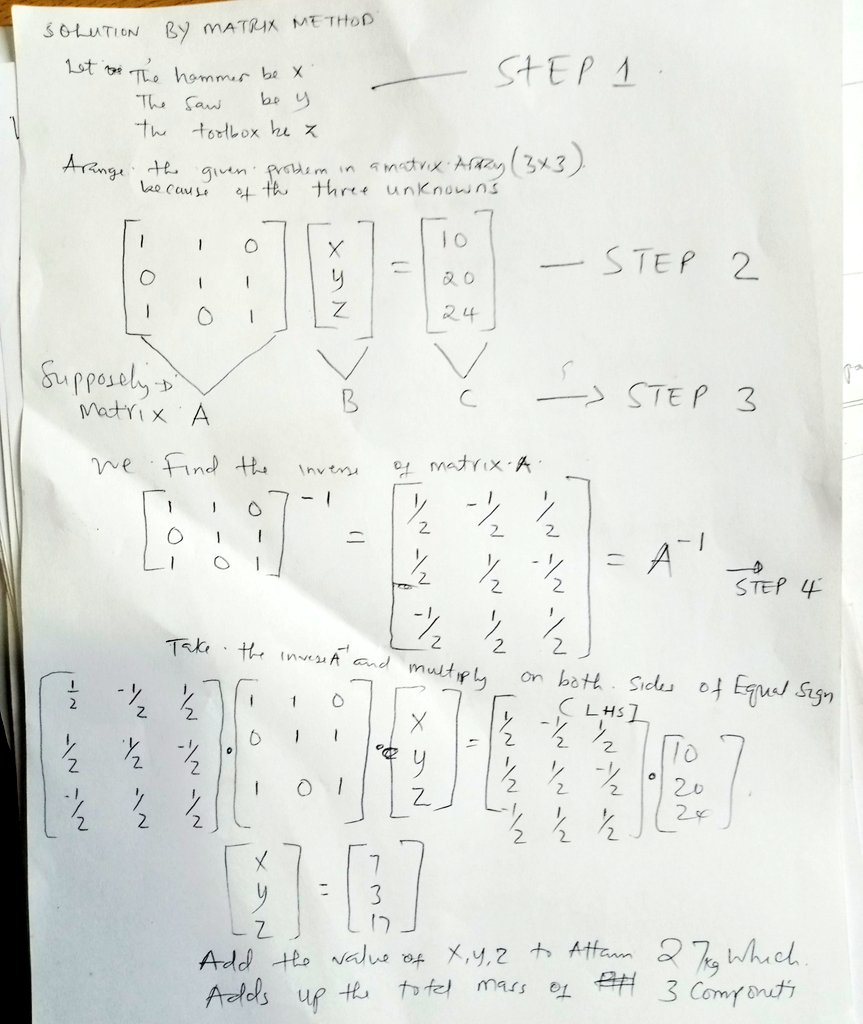 SOLUTION BY MATRIX METHOD
Let The hammer be x
The saw be y
The toolbox be z
STEP 1
Arange the given problem in a matrix Array (3x3).
because of the three unknowns
[1 1 0; 0 1 1; 1 0 1] [x; y; z] = [10; 20; 24] — STEP 2
Supposely → Matrix A B C → STEP 3
We Find the inverse of matrix A.
[1 1 0; 0 1 1; 1 0 1]^-1 = [1/2 -1/2 1/2; 1/2 1/2 -1/2; -1/2 1/2 1/2] = A^-1 → STEP 4
Take the inverse A^-1 and multiply on both sides of Equal Sign
( LHS]
[1/2 -1/2 1/2; 1/2 1/2 -1/2; -1/2 1/2 1/2] • [1 1 0; 0 1 1; 1 0 1] • [x; y; z] = [1/2 -1/2 1/2; 1/2 1/2 -1/2; -1/2 1/2 1/2] • [10; 20; 24].
[x; y; z] = [7; 3; 17]
Add the value of x,y,z to Attain 27kg which.
Adds up the total mass of 3 Componets